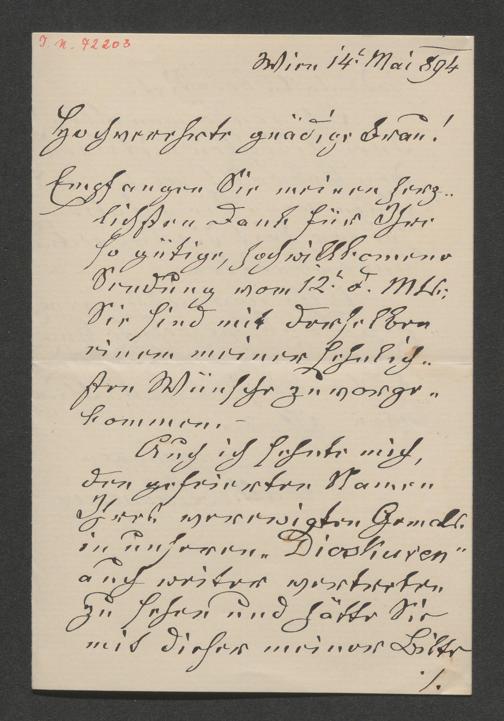 I. N. 72203
Wien 14t Mai 894
Hochverehrte gnädige Frau!
Empfangen Sie meinen herz-
lichsten Dank für Ihre
so gütige, hochwillkomene
Sendung vom 12t d. Mts.;
Sie sind mit derselben
einem meiner sehnlich-
sten Wünsche zuvorge-
kommen. –
Auch ich sehnte mich,
den gefeierten Namen
Ihres verewigten Gemals
in unseren „Dioskuren"
auch weiter vertreten
zu sehen und hätte Sie
mit dieser meiner Bitte
./.